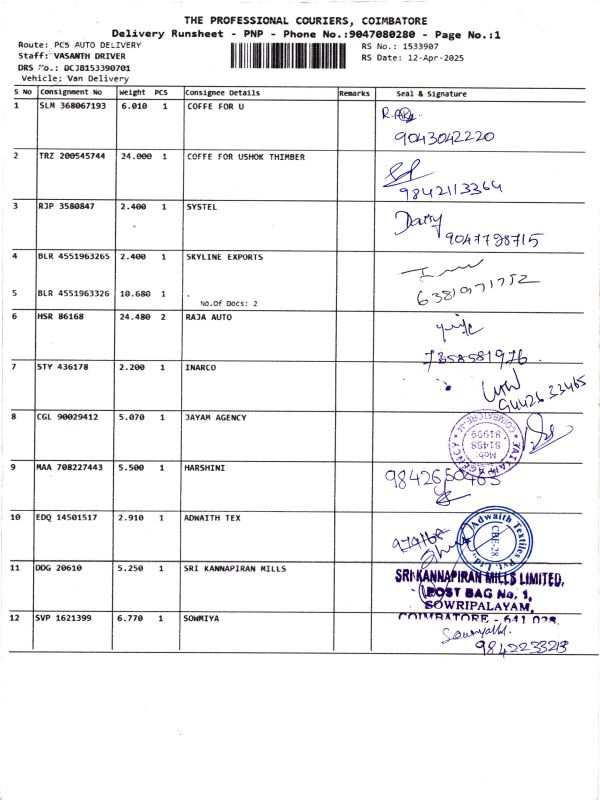 THE PROFESSIONAL COURIERS, COIMBATORE
Delivery Runsheet - PNP - Phone No.:9047080280 - Page No.:1
Route: PCS AUTO DELIVERY
RS No.: 1533907
Staff: VASANTH DRIVER
RS Date: 12-Apr-2025
DRS No.: DCJB153390701
Vehicle: Van Delivery
S No Consignment No Weight PCS Consignee Details Remarks Seal & Signature
1 SLM 368067193 6.010 1 COFFE FOR U
9043042220
2 TRZ 200545744 24.000 1 COFFE FOR USHOK THIMBER
9842113364
3 RJP 3580847 2.400 1 SYSTEL
9047798715
4 BLR 4551963265 2.400 1 SKYLINE EXPORTS
6381971752
5 BLR 4551963326 10.680 1 .
No.Of Docs: 2
6 HSR 86168 24.480 2 RAJA AUTO
7358581976
7 STY 436178 2.200 1 INARCO
9442633465
8 CGL 90029412 5.070 1 JAYAM AGENCY
Mob:
81999
51498
9 MAA 708227443 5.500 1 HARSHINI
10 EDQ 14501517 2.910 1 ADWAITH TEX
Adwaith Textiles Pvt. Ltd.
CBE-28
11 DDG 20610 5.250 1 SRI KANNAPIRAN MILLS
SRI KANNAPIRAN MILLS LIMITED,
POST BAG No. 1,
SOWRIPALAYAM,
COIMBATORE - 641 028.
12 SVP 1621399 6.770 1 SOWMIYA
9842233213